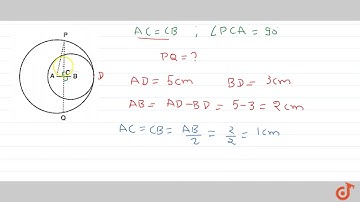 AC = CB ; ∠PCA = 90
PQ = ?
AD = 5cm BD = 3cm
AB = AD - BD = 5 - 3 = 2cm
AC = CB = AB/2 = 2/2 = 1cm
P
A C B D
Q